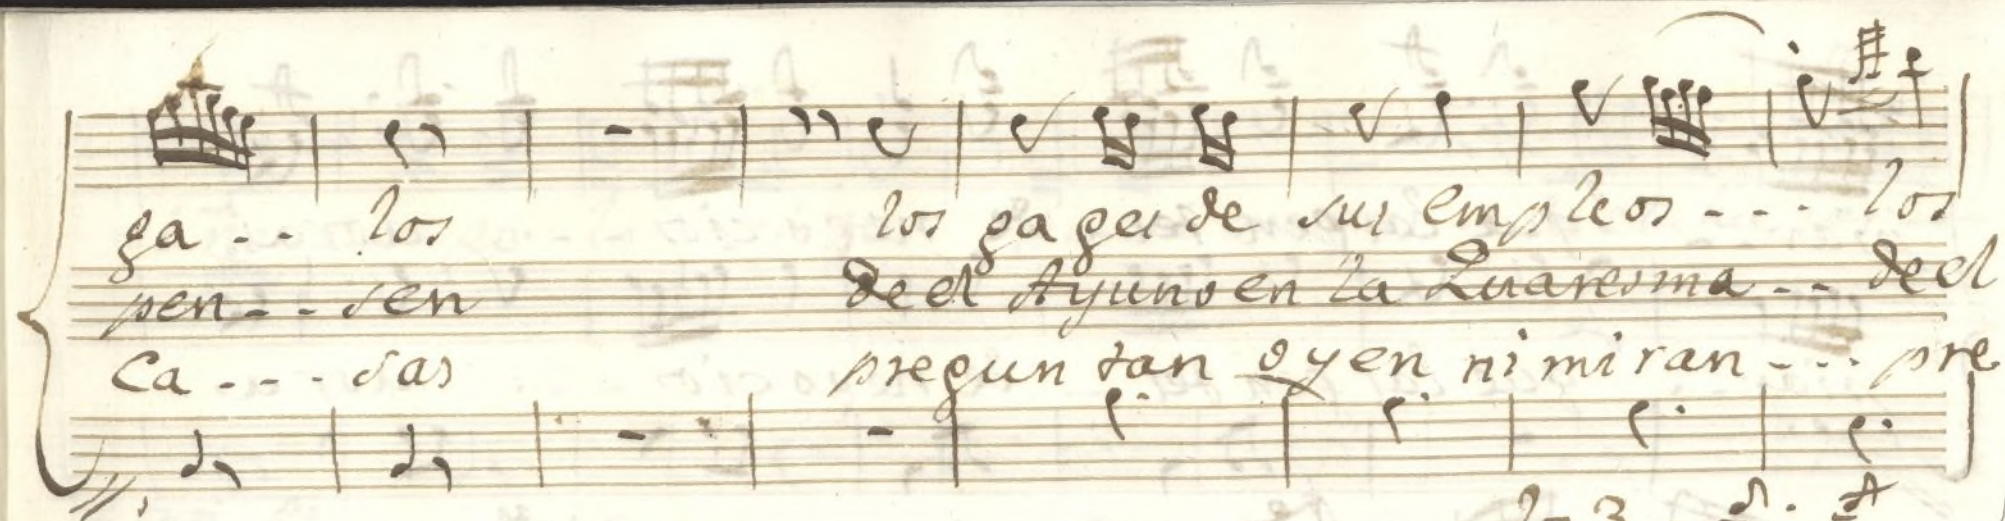 ga - - . los los gages de sus empleos - - - . los
pen - - . sen de el Ayuno en la Quaresma - - de el
Ca - - - . sas preguntan oyen ni miran - - - . pre